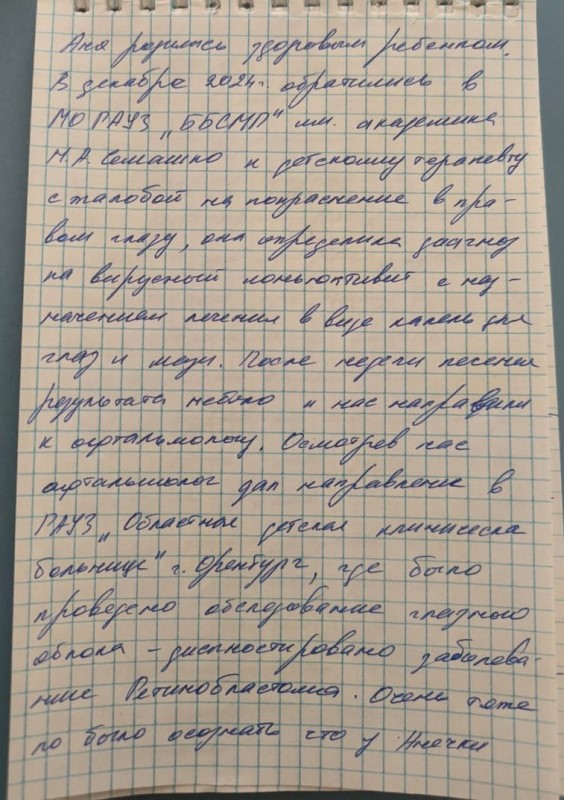 Аня родилась здоровым ребенком.
В декабре 2024г. обратились в
МО ГАУЗ "ББСМП" им. академика
Н.А. Семашко к детскому терапевту
с жалобой на покраснение в пра-
вом глазу, она определила диагноз
на вирусный коньюктивит с наз-
начением лечения в виде капель для
глаз и мази. После недели лечения
результата небыло и нас направили
к офтальмологу. Осмотрев нас
офтальмолог дал направление в
ГАУЗ "Областная детская клиническа
больница" г. Оренбург, где было
проведено обследование глазного
яблока – диагностировано заболева-
ние Ретинобластома. Очень тяже
ло было осознать что у Анечки